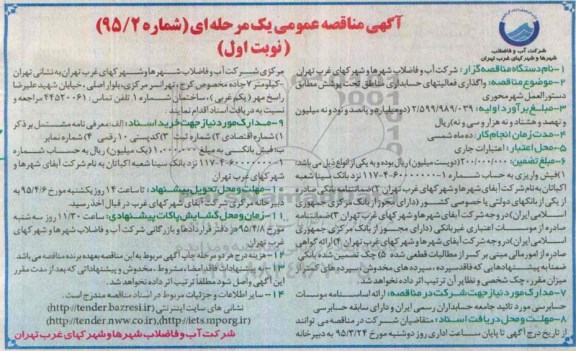 آگهی مناقصه عمومی یک مرحله ای (شماره ۹۵/۲)
(نوبت اول)
شرکت آب و فاضلاب
شهرها و شهرکهای غرب تهران
۱-نام دستگاه مناقصه گزار: شرکت آب و فاضلاب شهرها و شهرکهای غرب تهران
۲-موضوع مناقصه: واگذاری فعالیتهای حسابداری مناطق تحت پوشش مطابق
دستورالعمل شهر محوری
۳-مبلغ برآورد اولیه: ۲/۵۹۹/۹۸۹/۰۳۹ (دومیلیارد و پانصد و نود و نه میلیون
و نهصد و هشتاد و نه هزار و سی و نه) ریال
۴-مدت زمان انجام کار: ده ماه شمسی
۵-محل اعتبار: اعتبارات جاری
۶-مبلغ تضمین: ۲۰۰/۰۰۰/۰۰۰ (دویست میلیون) ریال بوده و به یکی از انواع ذیل می باشد:
۱)فیش واریزی به حساب شماره ۱-۱۱۷-۴-۶۰۰۰۰۰۰ نزد بانک سینا شعبه
اکباتان به نام شرکت آبفای شهرها و شهرکهای غرب تهران ۲)ضمانتنامه بانکی صادره
از یکی از بانکهای دولتی یا خصوصی کشور (دارای مجوز از بانک مرکزی جمهوری
اسلامی ایران) در وجه شرکت آبفای شهرها و شهرکهای غرب تهران ۳)ضمانتنامه
صادره از موسسات اعتباری غیربانکی (دارای مجوز از بانک مرکزی جمهوری
اسلامی ایران) در وجه شرکت آبفای شهرها و شهرکهای غرب تهران ۴)ارائه گواهی
صادره از امور مالی مبنی بر کسر از مطالبات قطعی شده ۵) چک تضمین شده بانکی
ضمنا به پیشنهادهایی که فاقد سپرده، سپرده های مخدوش، سپرده های کمتر از
میزان مقرر، چک شخصی و نظایر آن ترتیب اثر داده نخواهد شد.
۷-مدارک مورد نیاز جهت شرکت در مناقصه: ارائه اساسنامه موسسات
حسابرسی مورد تائید جامعه حسابداران رسمی ایران و دارای سابقه حسابرسی
۸-مهلت و محل دریافت اسناد: متقاضیان شرکت در مناقصه می توانند
از تاریخ درج آگهی تا پایان ساعت اداری روز دوشنبه مورخ ۹۵/۳/۲۴ به دبیرخانه
مرکزی شرکت آب و فاضلاب شهرها و شهرکهای غرب تهران به نشانی تهران
-کیلومتر ۷ جاده مخصوص کرج، تهرانسر مرکزی، بلوار اصلی، خیابان شهید علیرضا
راسخ مهر (یکم غربی)، ساختمان شماره ۱ تلفن تماس: ۴۴۵۲۰۰۶۱ مراجعه و
نسبت به دریافت اسناد اقدام نمایند.
۹-مدارک مورد نیاز جهت خرید اسناد: الف: معرفی نامه مشتمل بر ذکر
۱)شماره اقتصادی ۲)شماره ثبت ۳)کدپستی ۱۰ رقمی ۴)شماره نمابر
ب: فیش بانکی به مبلغ ۱/۰۰۰/۰۰۰ (یک میلیون) ریال به حساب شماره
۱-۱۱۷-۴-۶۰۰۰۰۰۰ نزد بانک سینا شعبه اکباتان به نام شرکت آبفای شهرها و
شهرکهای غرب تهران
۱۰-مهلت و محل تحویل پیشنهاد: تا ساعت ۱۴ روز یکشنبه مورخ ۹۵/۴/۶ به
دبیرخانه مرکزی شرکت آبفای شهرکهای غرب تهران در قبال اخذ رسید.
۱۱-زمان و محل گشایش پاکات پیشنهادی: ساعت ۱۱/۳۰ روز سه شنبه
مورخ ۹۵/۴/۸ در دفتر قراردادها و بازرگانی شرکت آب و فاضلاب شهرها و شهرکهای
غرب تهران
۱۲-هزینه درج هر دو مرحله چاپ آگهی مربوط به این مناقصه بعهده برنده مناقصه می باشد
۱۳-به پیشنهادات فاقد امضاء، مشروط، مخدوش و پیشنهاداتی که بعد از مدت مقرر
این آگهی واصل شود مطلقاً ترتیب اثر داده نخواهد شد.
۱۴- سایر اطلاعات و جزئیات مربوط در اسناد مناقصه مندرج است.
نشانی های سایت اینترنتی (http://tender.bazresi.ir)
(http://tender.nww.co.ir), (http://iets.mporg.ir)
شرکت آب و فاضلاب شهرها و شهرکهای غرب تهران